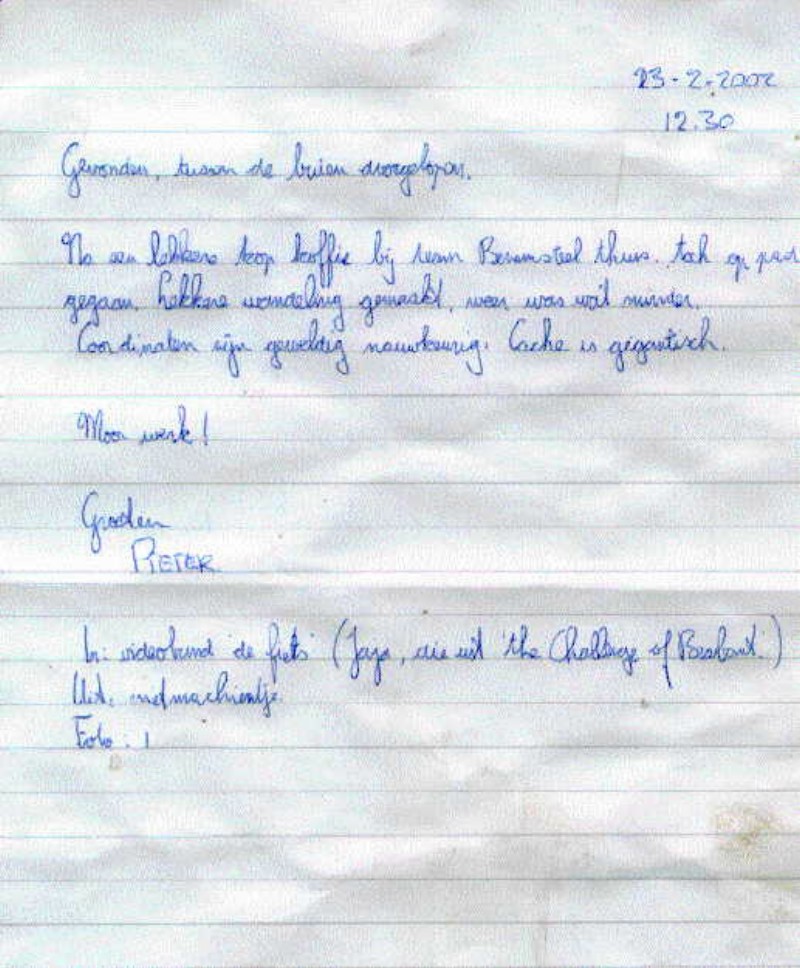 23-2-2002
12.30
Gevonden, tussen de buien doorgelopen.
Na een lekkere kop koffie bij team Benamsteel thuis. toch op pad
gegaan. Lekkere wandeling gemaakt, weer was wat minder.
Coordinaten zijn geweldig nauwkeurig. Cache is gigantisch.
Mooi werk!
Groeten
PIETER
In: videoband 'de fiets' (Jaja, die uit 'the Challenge of Brabant.')
Uit:
Foto: 1